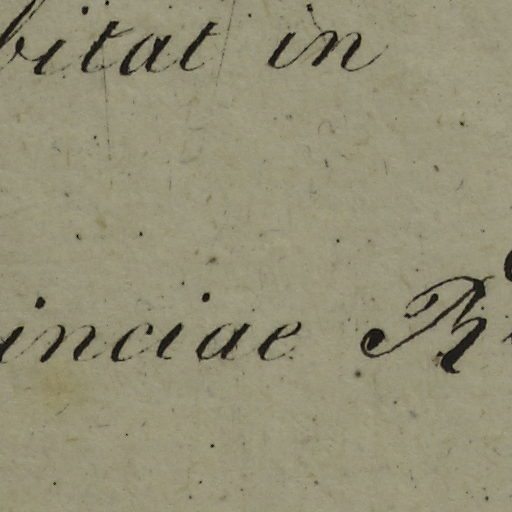 bitat in
inciae R